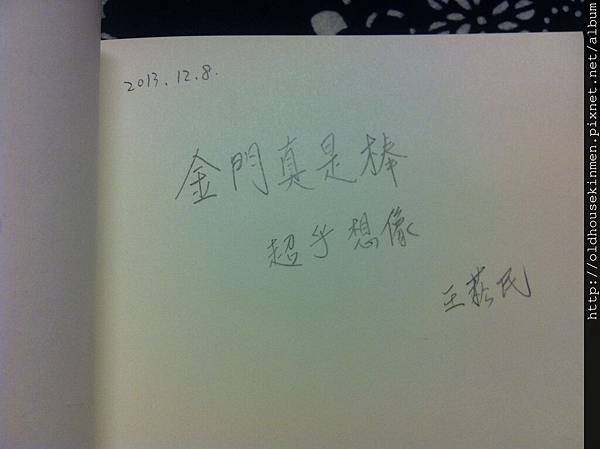 2013.12.8.
金門真是棒
超乎想像
王菘民
http://oldhousekinmen.pixnet.net/album